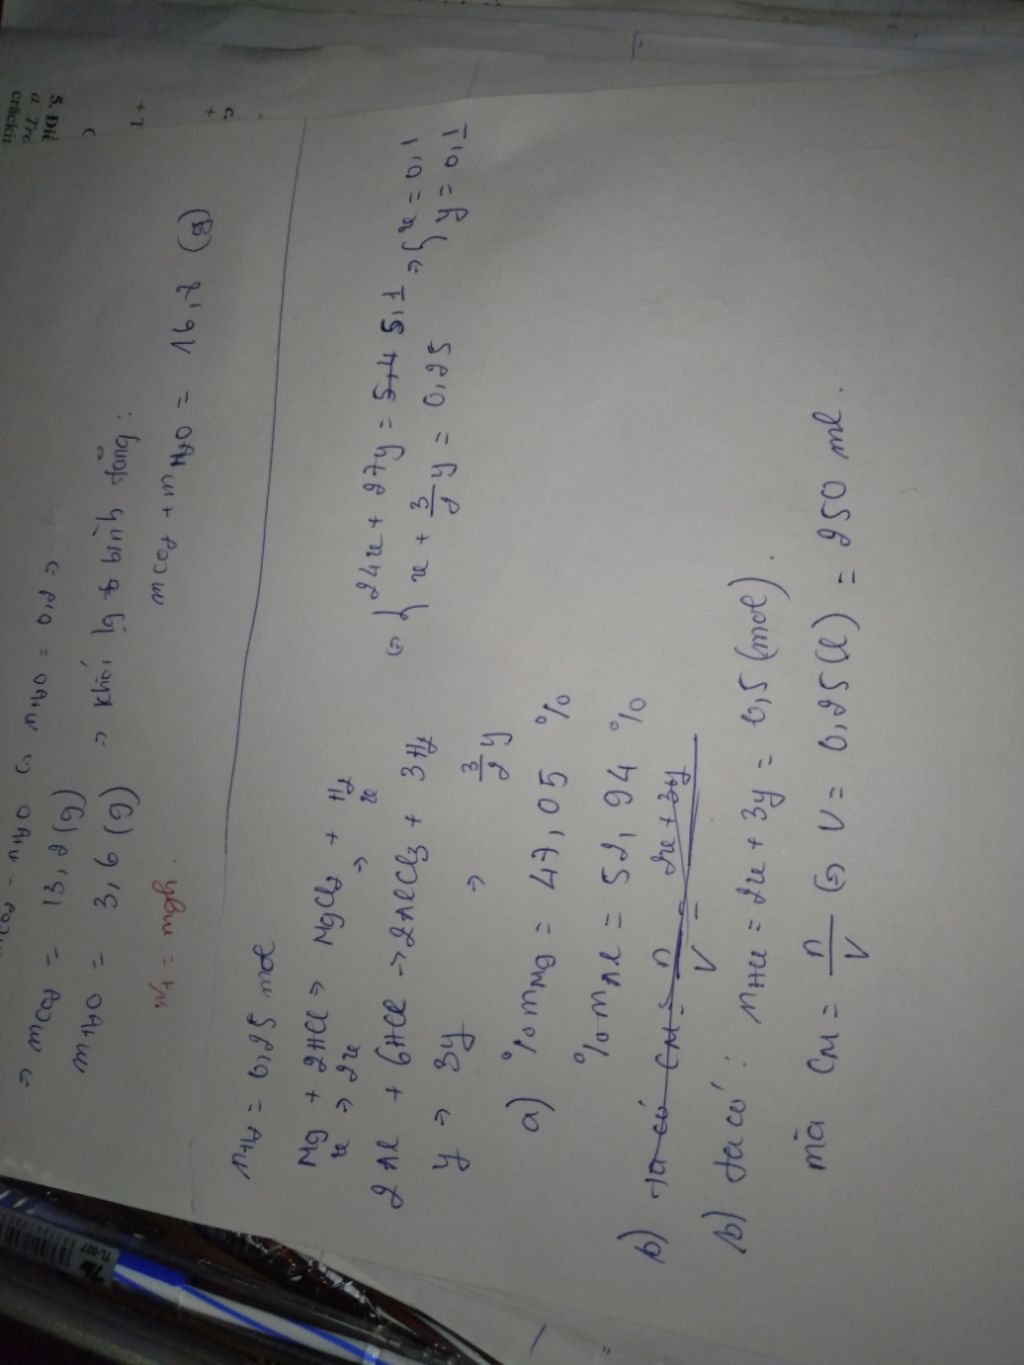 nCO2 - nH2O ⇔ nH2O = 0,2 ⇒
⇒ mCO2 = 13,2 (g)
mH2O = 3,6 (g) ⇒ khối lg b bình tăng :
mCO2 + mH2O = 16,8 (g)
nH2 = 0,25 mol
Mg + 2HCl ⇒ MgCl2 + H2
x ⇒ 2x ⇒ x
2Al + 6HCl → 2AlCl3 + 3H2
y ⇒ 3y ⇒ 3/2 y
⇔ { 24x + 27y = 5,4 5,1 ⇒ { x = 0,1
x + 3/2 y = 0,25 y = 0,1
a) %mMg = 47,05 %
%mAl = 52,94 %
b) ta có CM = n/V = 2x + 3y
b) ta có : nHCl = 2x + 3y = 0,5 (mol).
mà CM = n/V ⇔ V = 0,25 (l) = 250 ml.
5. Điề
a. Trc
crăckin
+ T
C
TL-027